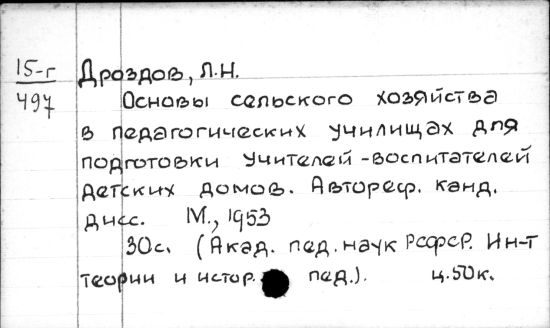 15-г
497
Дроздов, Л.Н.
Основы сельского хозяйства
в педагогических училищах для
подготовки учителей-воспитателей
детских домов. Автореф. канд.
дисс. М., 1953
30с. (Акад. пед. наук РСФСР. Ин-т
теории и истор. пед.). ц.50к.